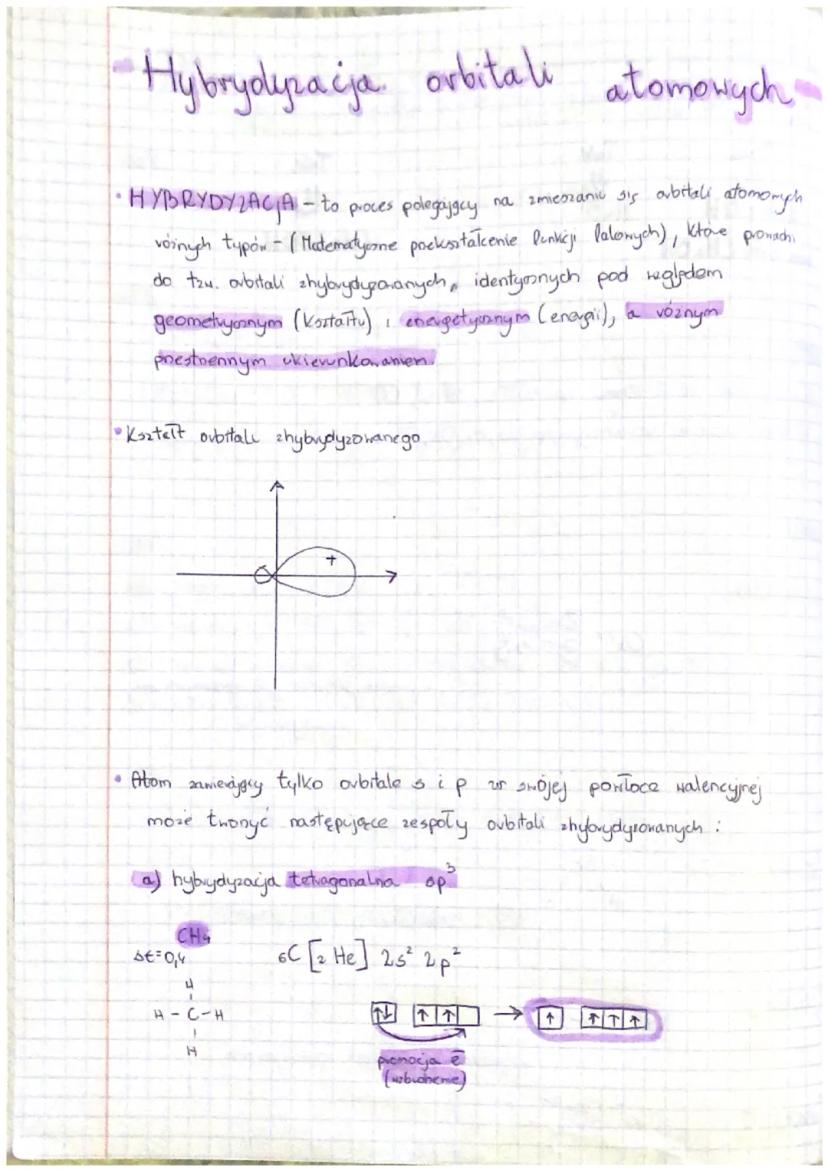 Hybrydyzacja orbitali atomowych
• HYBRYDYZACJA - to proces polegający na zmieszaniu się orbitali atomowych
różnych typów - (Matematyczne przekształcenie funkcji falowych), które prowadzi
do tzw. orbitali zhybrydyzowanych, identycznych pod względem
geometrycznym (kształtu) i energetycznym (energii), a różnym
przestrzennym ukierunkowaniem.
• Kształt orbitalu zhybrydyzowanego
+
• Atom zawierający tylko orbitale s i p w swojej powłoce walencyjnej
może tworzyć następujące zespoły orbitali zhybrydyzowanych:
a) hybrydyzacja tetragonalna sp³
CH₄
ΔE=0,4
₆C [₂He] 2s² 2p²
H
H - C - H
H
↑↓ ↑ ↑ → ↑ ↑ ↑ ↑
promocja ē
(wzbudzenie)